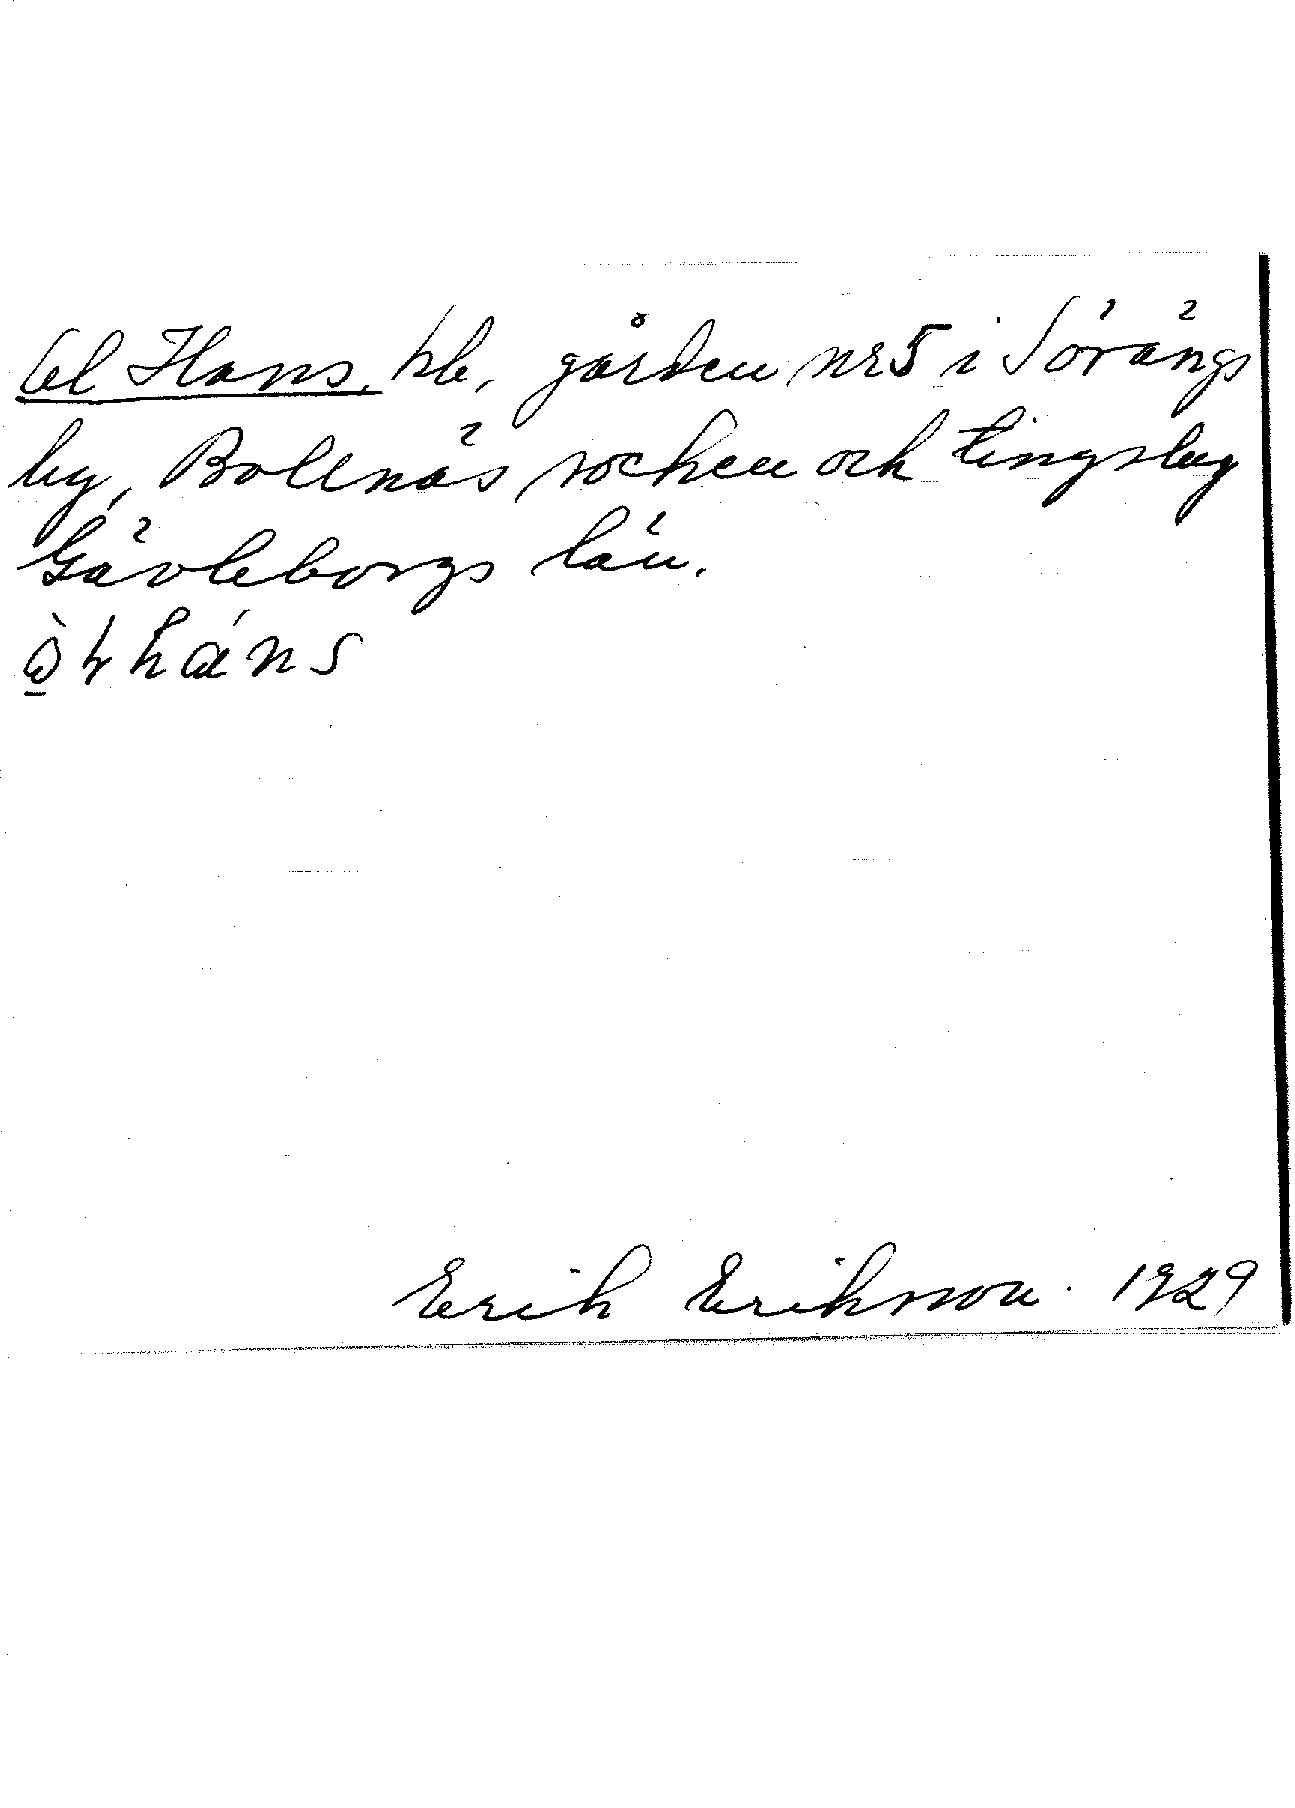 Ol Hans, hb, gården nr 5 i Sörängs
by, Bollnäs socken och tingslag
Gävleborgs län.
Erik Erikson. 1929